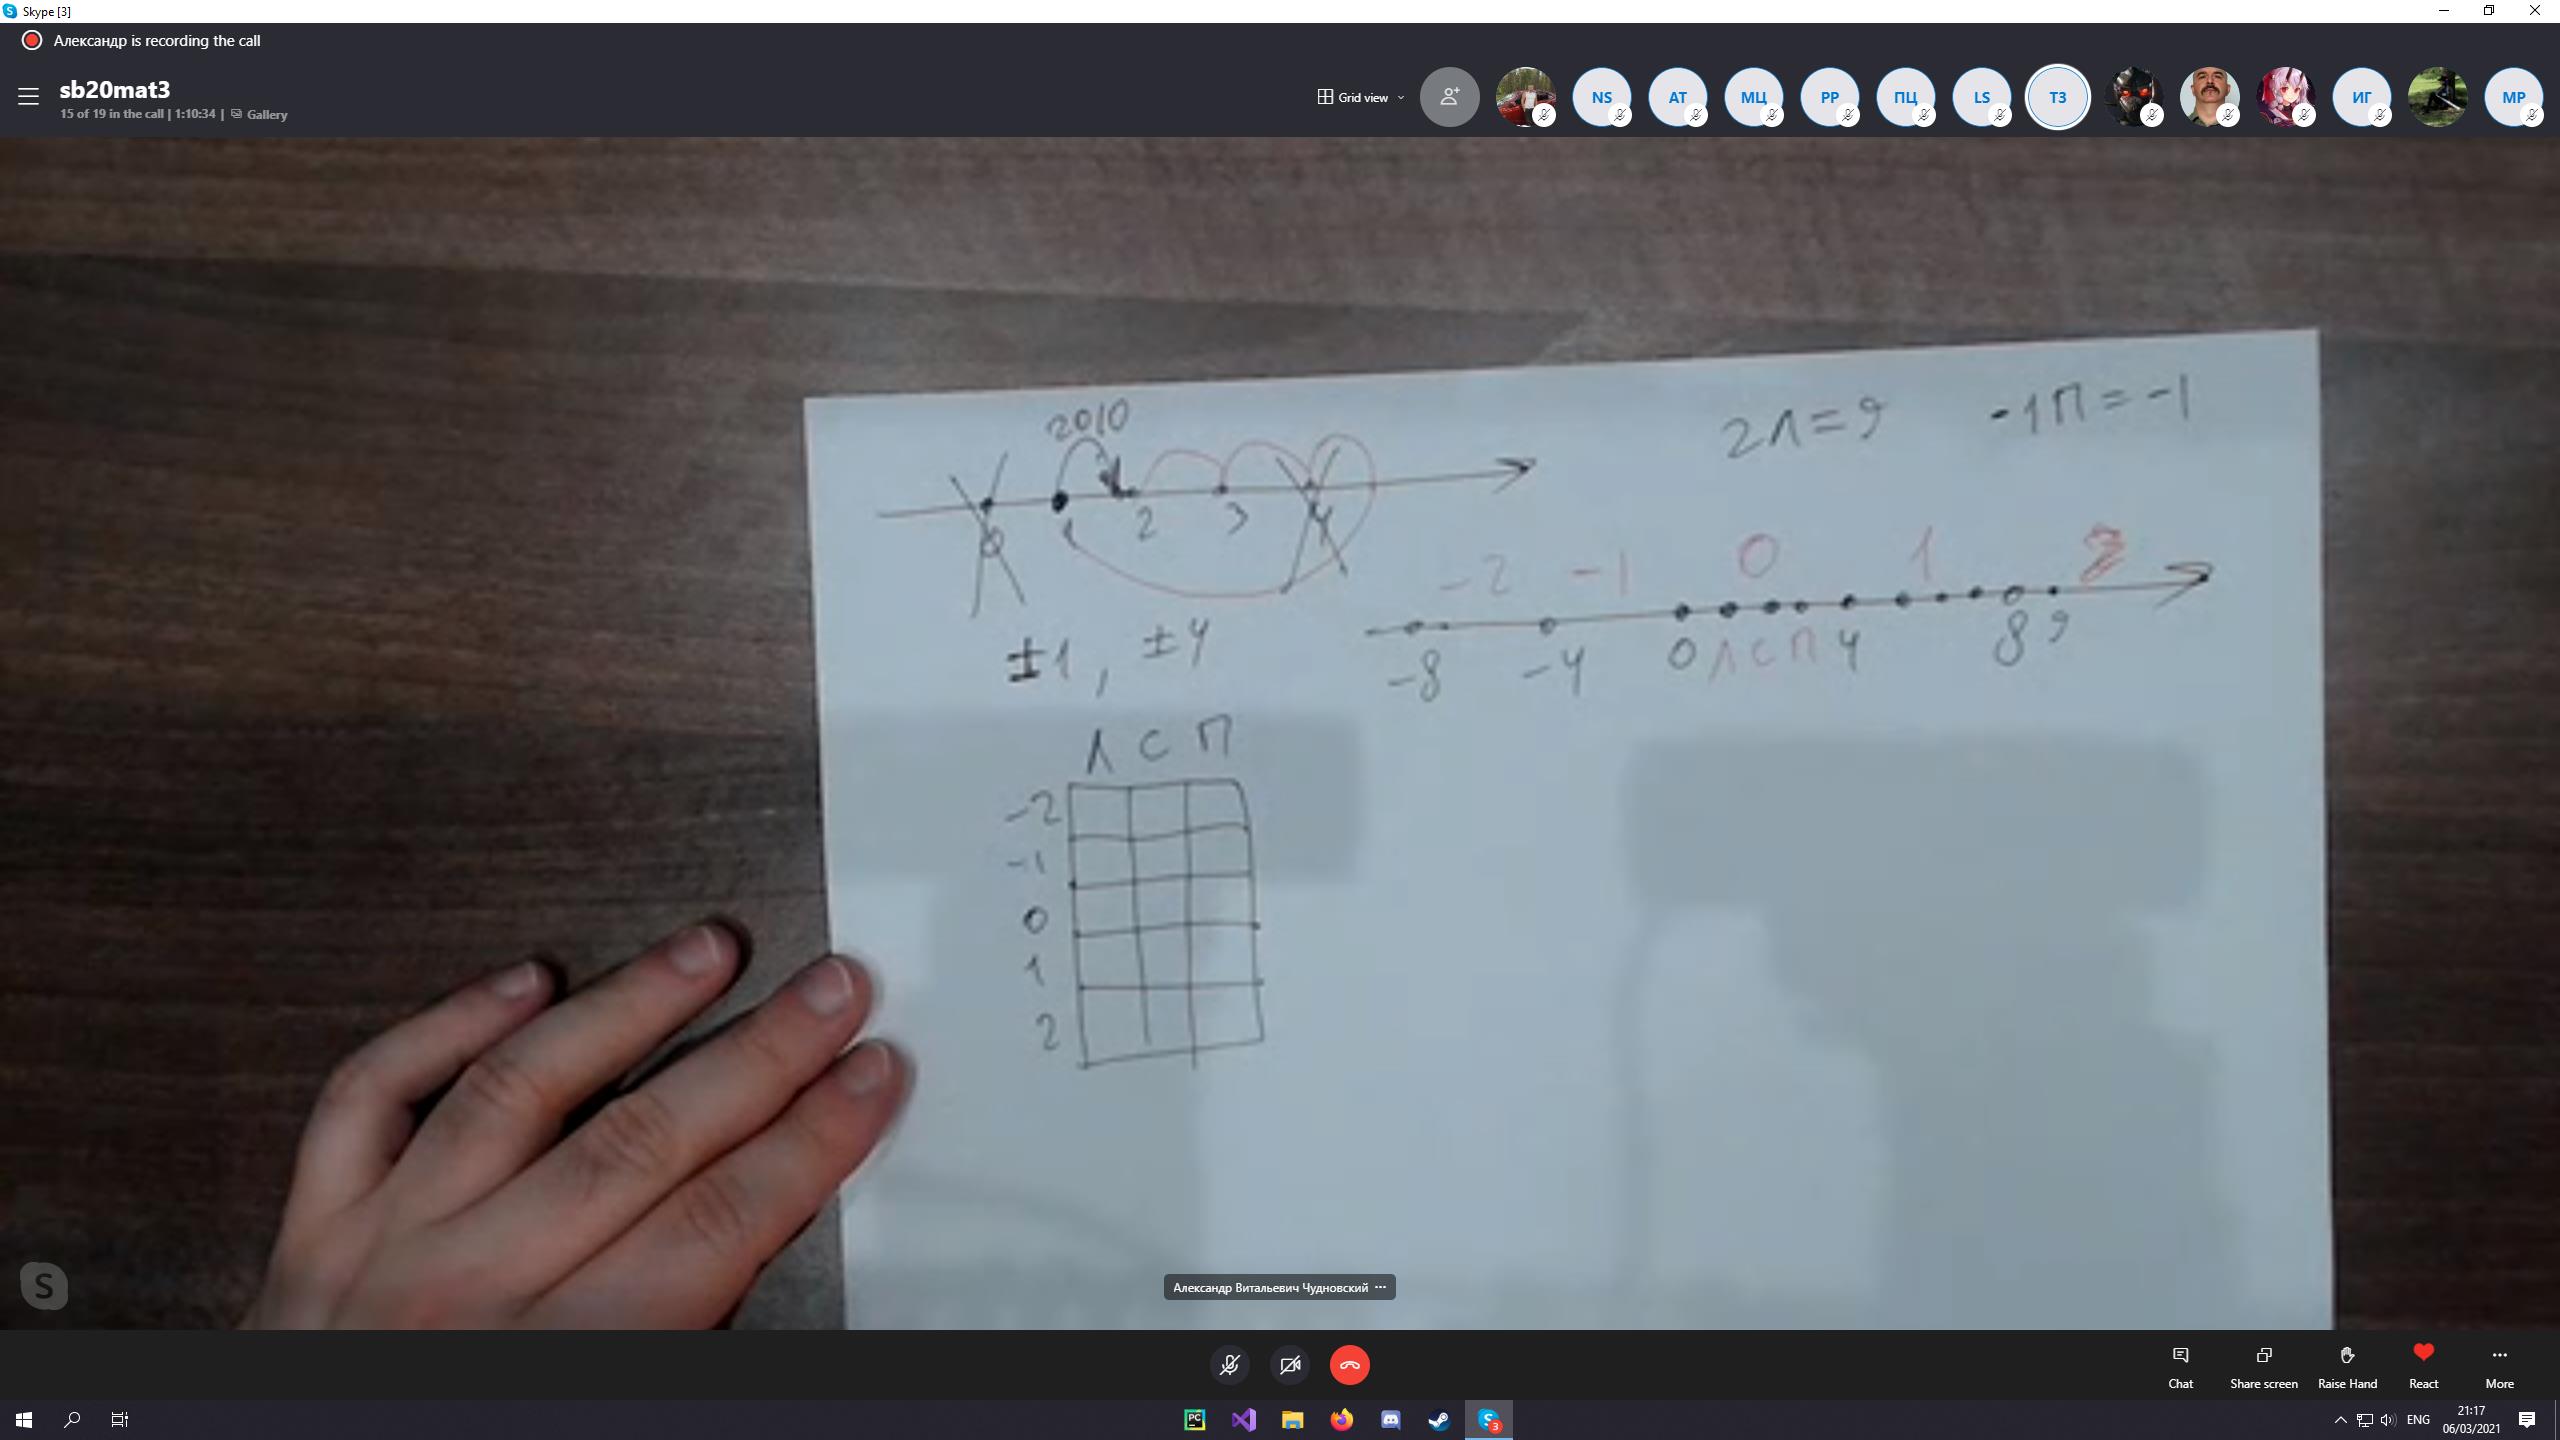 Skype [3]
Александр is recording the call
sb20mat3
15 of 19 in the call | 1:10:34 | Gallery
Grid view
NS
AT
МЦ
PP
ПЦ
LS
ТЗ
ИГ
МР
2010
2Л=9
-1П=-1
0 1 2 3 4
-2 -1 0 1 2
-8 -4 0 Л С П 4 8 9
±1, ±4
Л С П
-2
-1
0
1
2
S
Александр Витальевич Чудновский
Chat
Share screen
Raise Hand
React
More
PC
S
3
ENG
21:17
06/03/2021